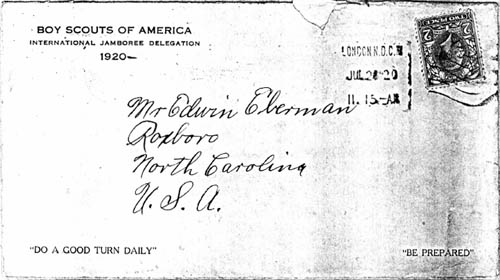 BOY SCOUTS OF AMERICA
INTERNATIONAL JAMBOREE DELEGATION
1920—
LONDON N.D.O.
JUL 28 20
11.15-AM
TWO PENCE
2 2
Mr Edwin Eberman
Roxboro
North Carolina
U. S. A.
"DO A GOOD TURN DAILY"
"BE PREPARED"